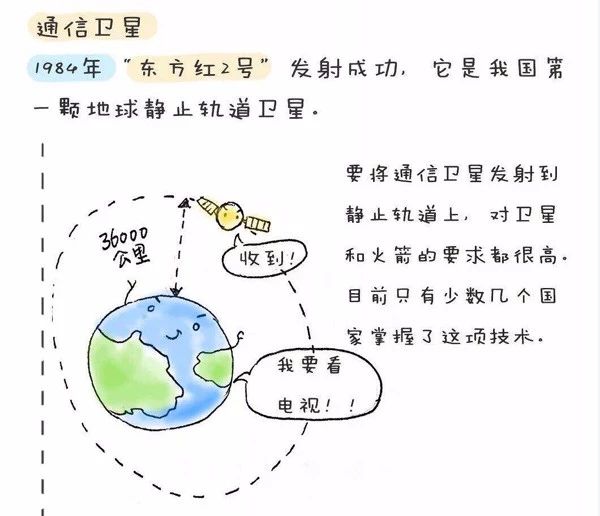 通信卫星
1984年 "东方红2号" 发射成功, 它是我国第
一颗地球静止轨道卫星.
要将通信卫星发射到
静止轨道上, 对卫星
和火箭的要求都很高.
目前只有少数几个国
家掌握了这项技术.
36000
公里
收到!
我要看
电视!!